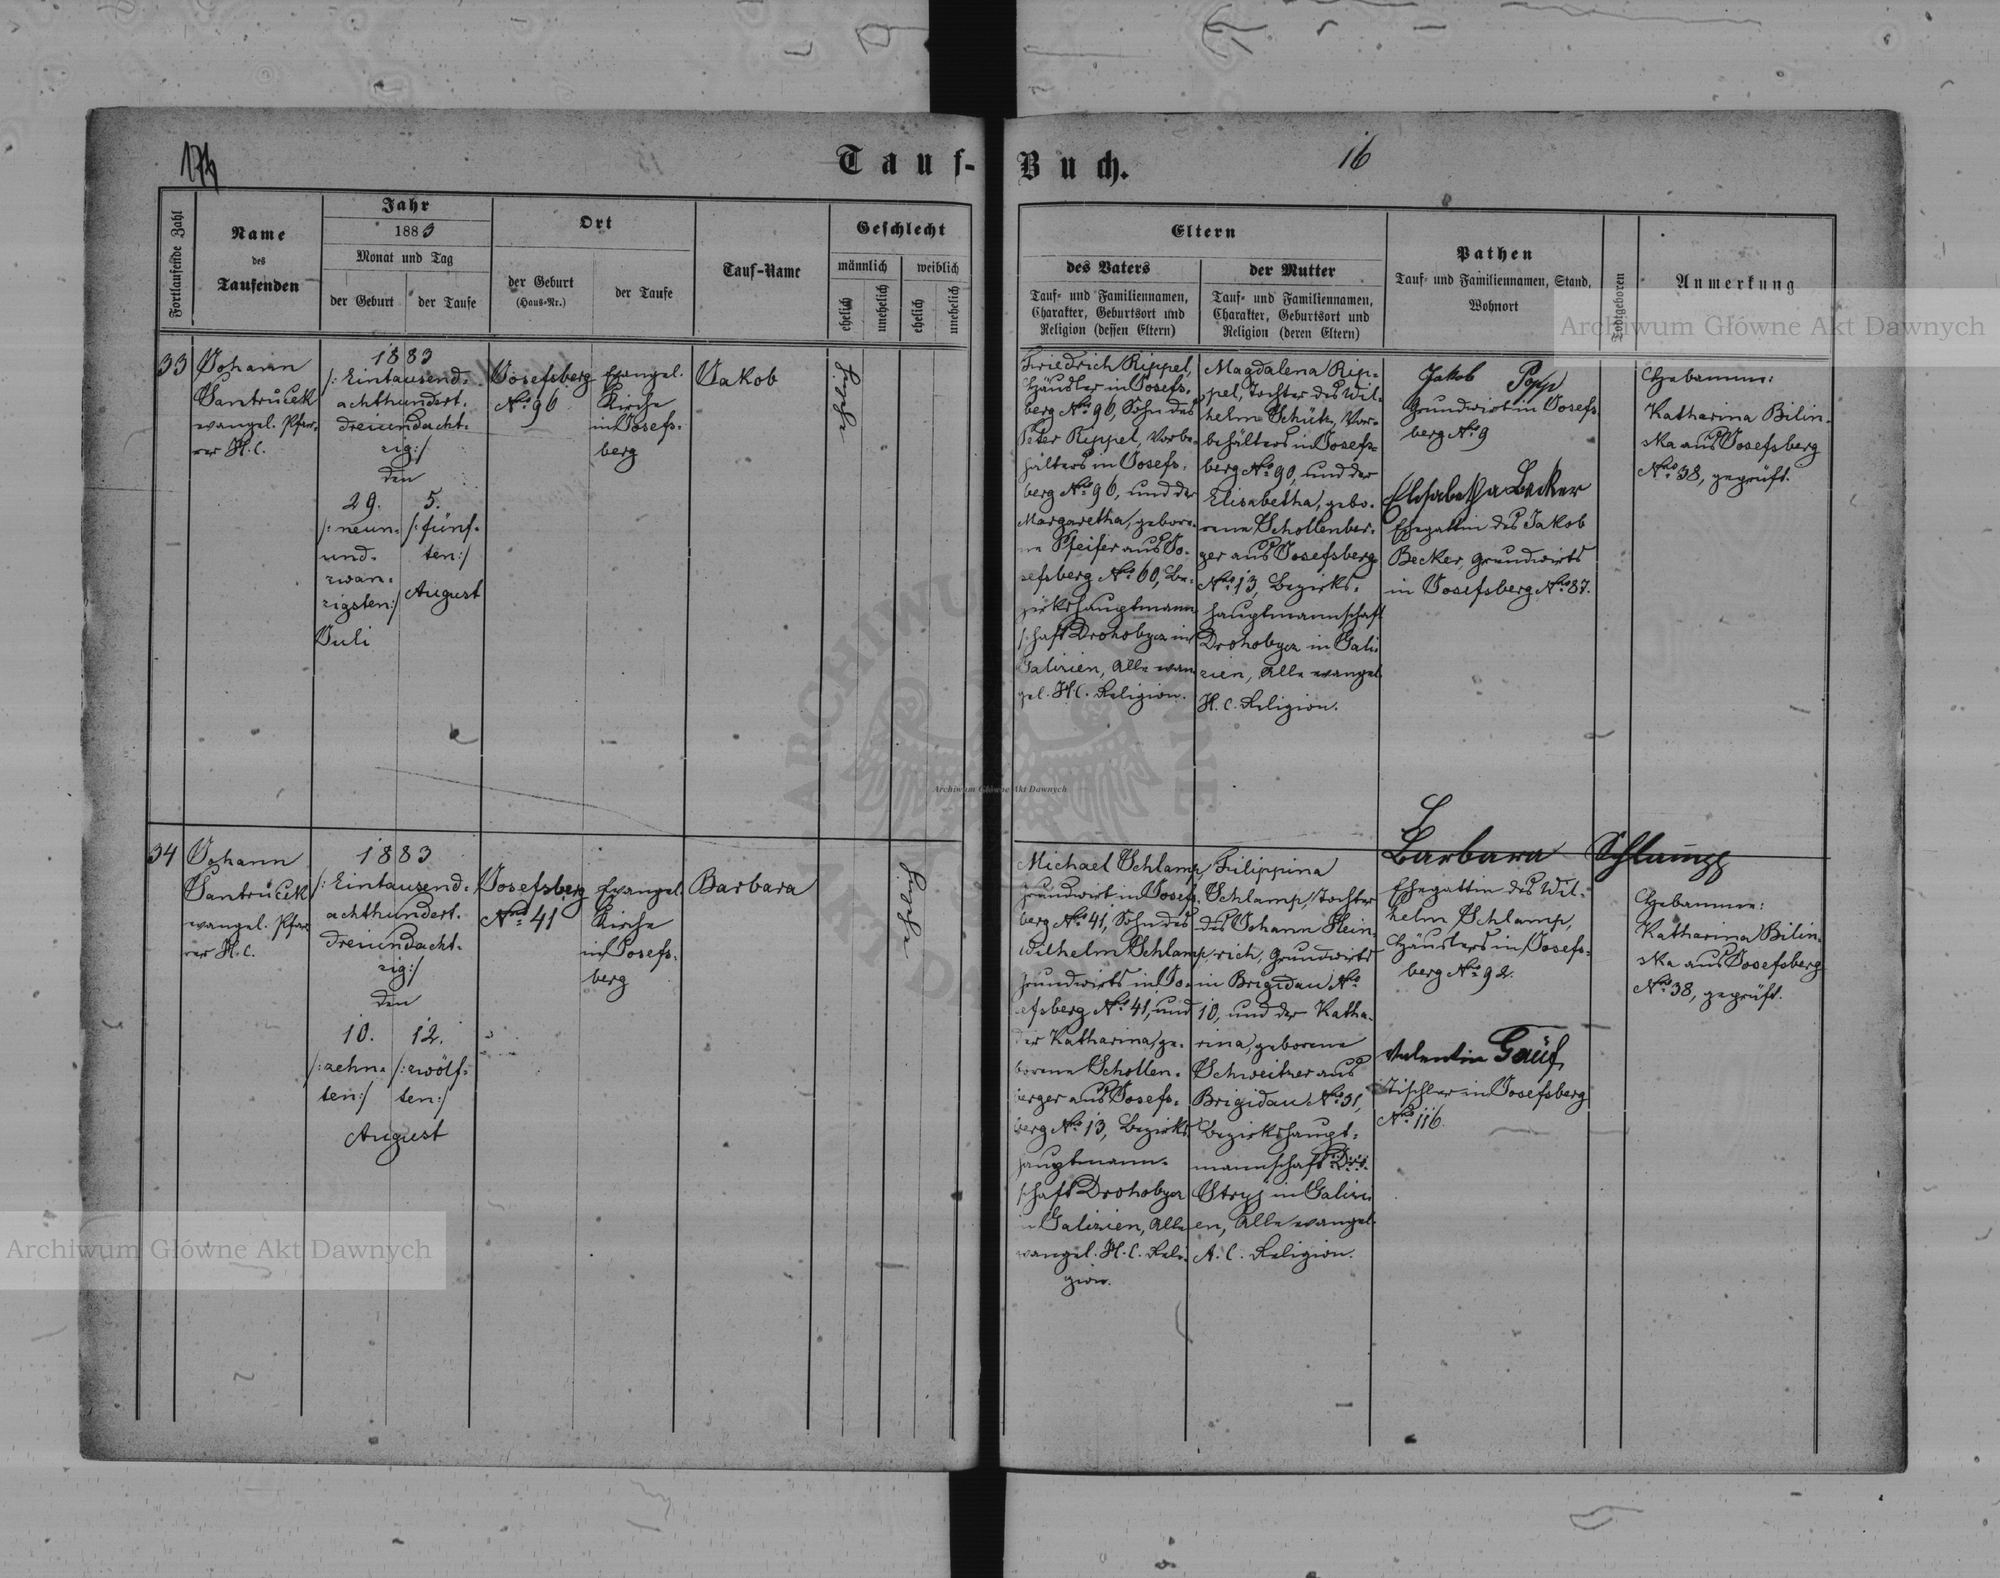 Tauf-Buch.
16
Fortlaufende Zahl
Name
des
Taufenden
Jahr
1883
Monat und Tag
der Geburt
der Taufe
Ort
der Geburt
(Haus-Nr.)
der Taufe
Tauf-Name
Geschlecht
männlich
weiblich
ehelich
unehelich
ehelich
unehelich
Eltern
des Vaters
Tauf- und Familiennamen,
Charakter, Geburtsort und
Religion (dessen Eltern)
der Mutter
Tauf- und Familiennamen,
Charakter, Geburtsort und
Religion (deren Eltern)
Pathen
Tauf- und Familiennamen, Stand,
Wohnort
Todtgeboren
Anmerkung
33
Johann
Jantrůček
evangel. Pfar-
rer H. C.
1883
/: Eintausend-
achthundert-
dreiundacht-
zig :/
den
29.
/: neun-
und-
zwan-
zigsten :/
Juli
5.
/: fünf-
ten :/
August
Josefsberg
No. 96
Evangel.
Kirche
in Josefs-
berg
Jakob
Friedrich Rippel,
Häusler in Josefs-
berg No. 96, Sohn des
Peter Rippel, Vorbe-
hälters in Josefs-
berg No. 96, und der
Margaretha, gebore-
ne Pfeifer aus Jo-
sefsberg No. 60, Be-
zirkshauptmann
schaft Drohobycz in
Galizien, Alle evan
gel. H. C. Religion.
Magdalena Rip-
pel, Tochter des Wil-
helm Schütz, Vor-
behälters in Josefs-
berg No. 90, und der
Elisabetha, gebo-
rene Schollenber-
ger aus Josefsberg
No. 13, Bezirks-
hauptmannschaft
Drohobycz in Gali
zien, Alle evangel.
H. C. Religion.
Jakob Popp
Grundwirt in Josefs
berg No. 9
Elisabetha Becker
Ehegattin des Jakob
Becker, Grundwirts
in Josefsberg No. 87.
Hebamme:
Katharina Bilin-
ska aus Josefsberg
No. 38, geprüft.
34
Johann
Jantrůček
evangel. Pfar
rer H. C.
1883
/: Eintausend-
achthundert-
dreiundacht-
zig :/
den
10.
/: zehn-
ten :/
12.
/: zwölf-
ten :/
August
Josefsberg
No. 41
Evangel.
Kirche
in Josefs-
berg
Barbara
Michael Schlamp,
Grundwirt in Josefs-
berg No. 41, Sohn des
Wilhelm Schlamp,
Grundwirts in Jo-
sefsberg No. 41, und
der Katharina, ge-
borene Schollen-
berger aus Josefs-
berg No. 13, Bezirks
hauptmann-
schaft Drohobycz
in Galizien, Alle
evangel. H. C. Reli-
gion.
Filippina
Schlamp, Tochter
des Johann Hein-
rich, Grundwirts
in Brigidau No.
10, und der Katha-
rina, geborene
Schweitzer aus
Brigidau No. 31,
Bezirkshaupt-
mannschaft
Stryj in Galizi
en, Alle evangel.
A. C. Religion.
Barbara Schlampp
Ehegattin des Wil-
helm Schlamp,
Häuslers in Josefs-
berg No. 92.
Valentin Gauf
Tischler in Josefsberg
No. 116.
Hebamme:
Katharina Bilin-
ska aus Josefsberg
No. 38, geprüft.
Archiwum Główne Akt Dawnych
Archiwum Główne Akt Dawnych
Archiwum Główne Akt Dawnych